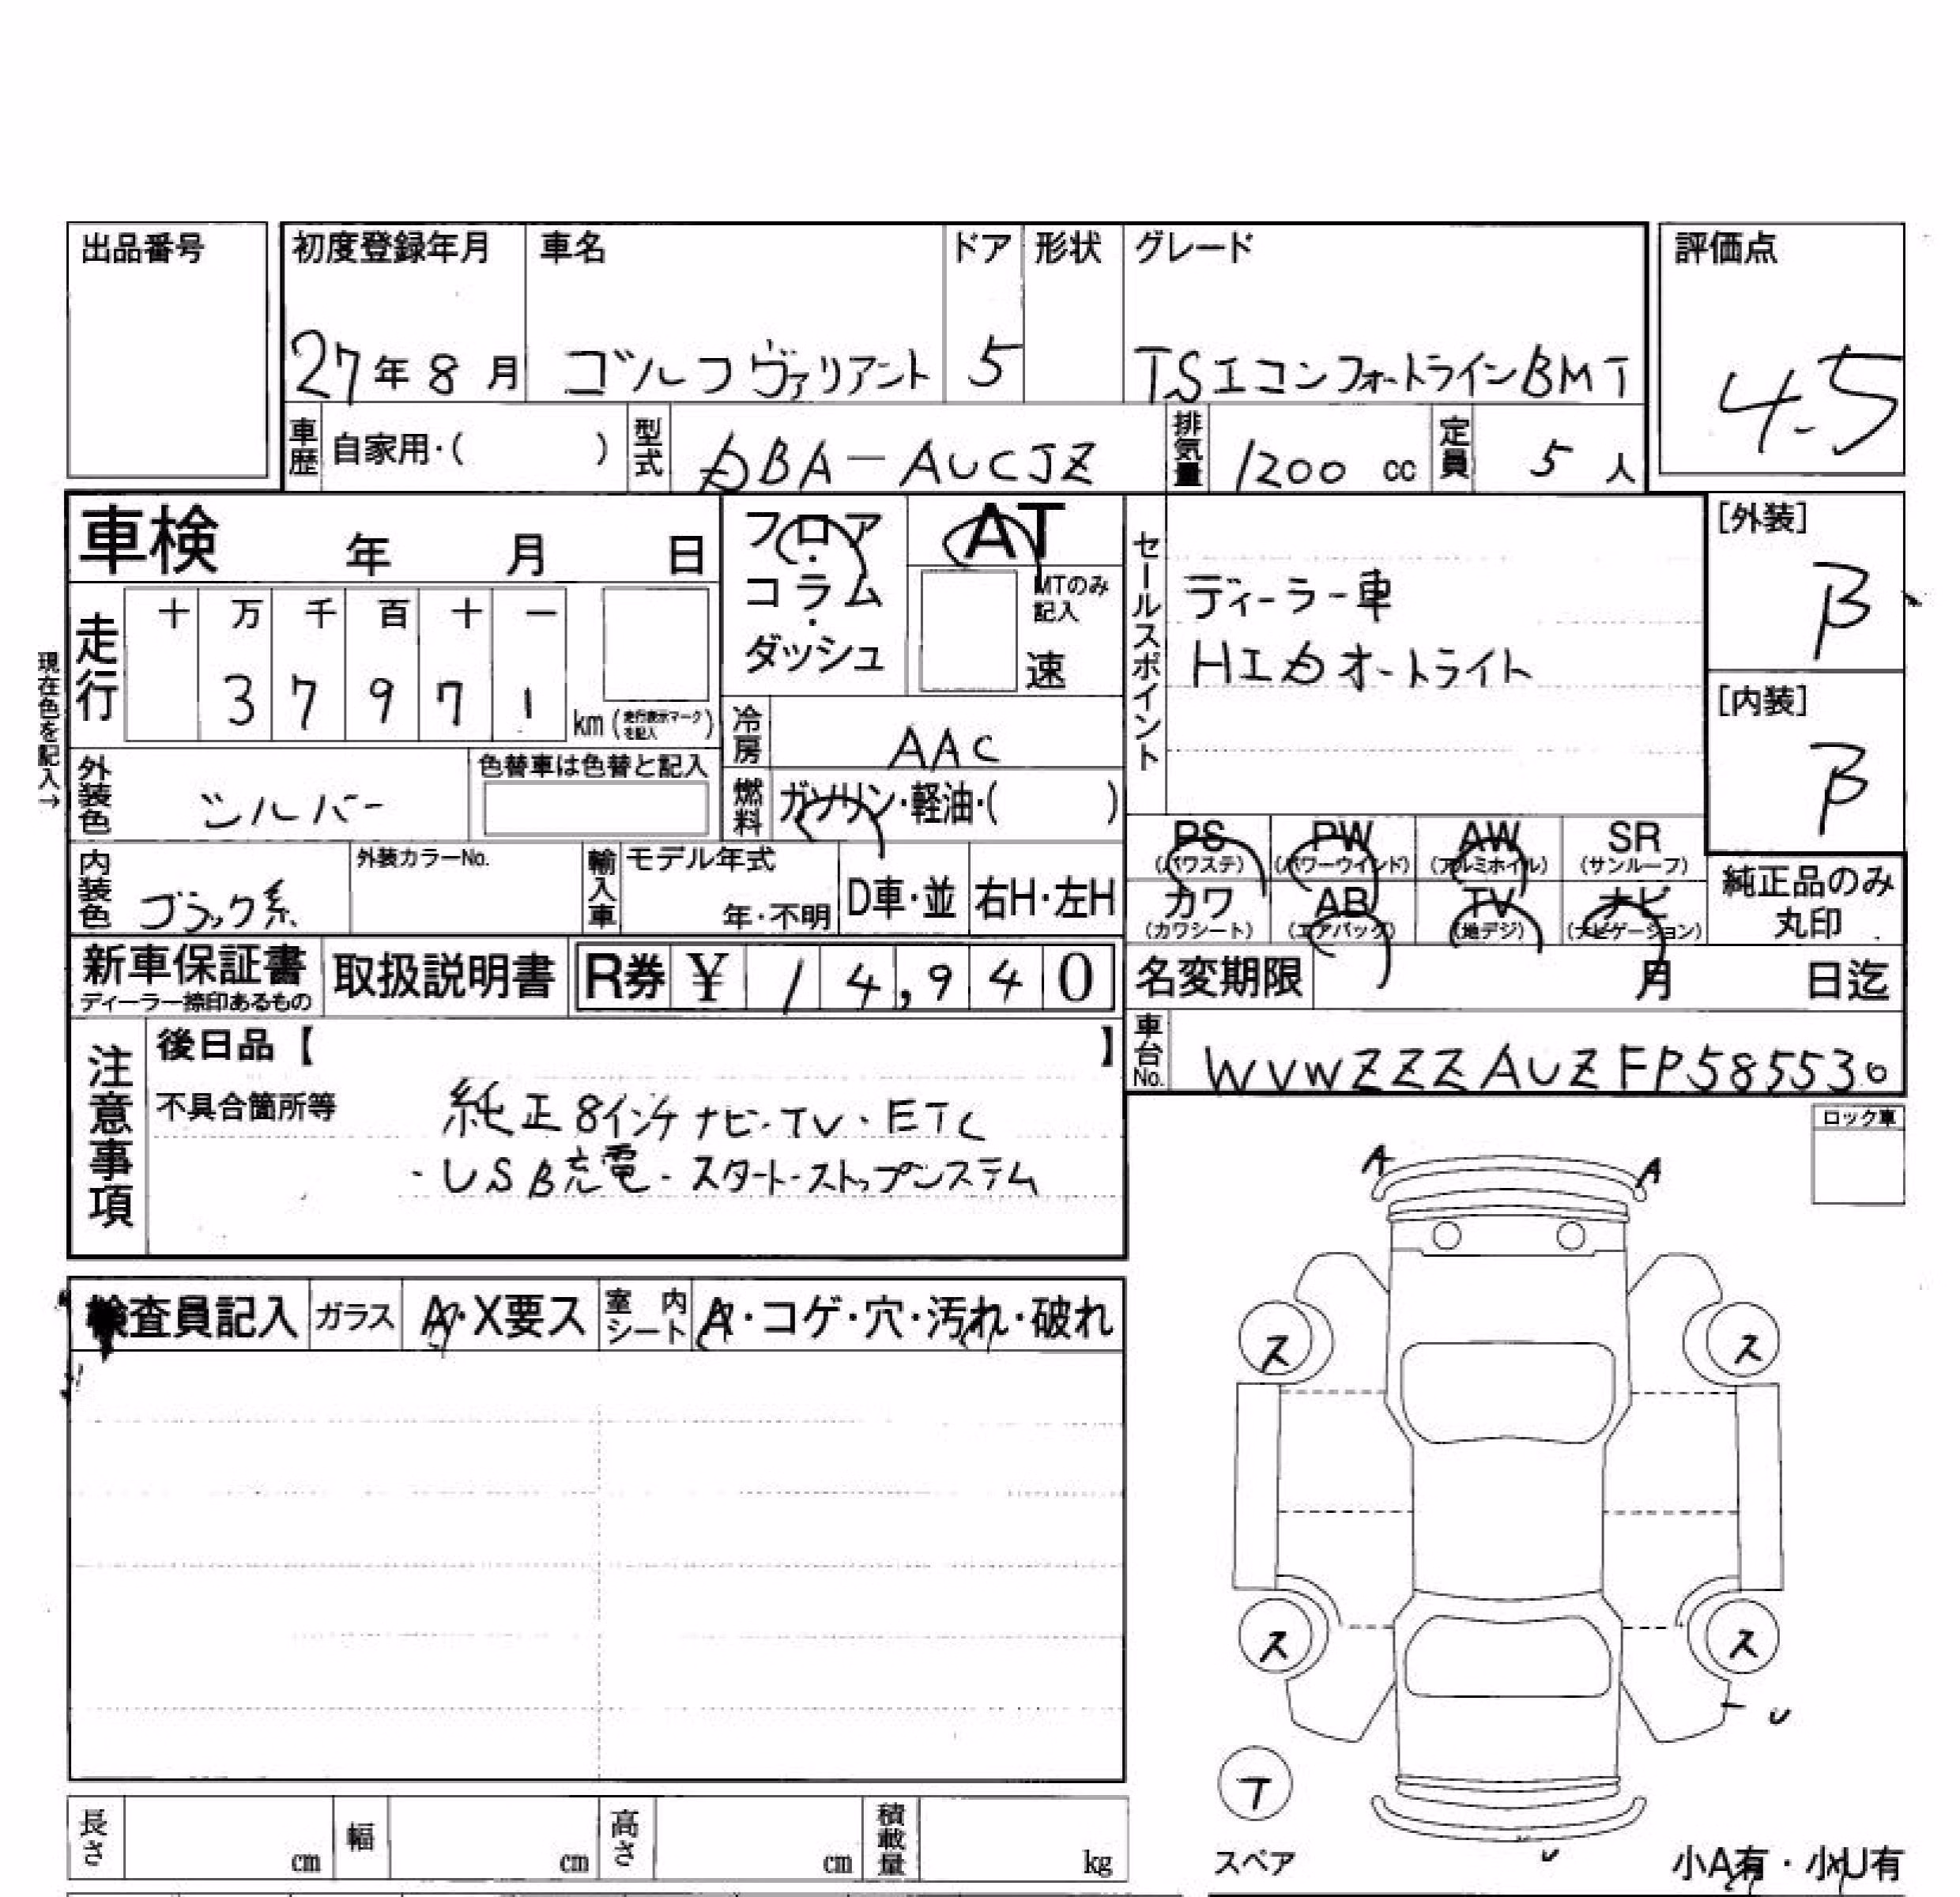 出品番号
初度登録年月 車名 ドア 形状 グレード 評価点
27年8月 ゴルフヴァリアント 5 TSIコンフォートラインBMT 4.5
車歴 自家用・( ) 型式 DBA-AUCJZ 排気量 1200 cc 定員 5 人
車検 年 月 日
フロア・コラム・ダッシュ
AT
MTのみ記入
速
セールスポイント
ディーラー車
HID オートライト
[外装]
B
[内装]
B
現在色を記入→
走行 十 万 千 百 十 一
3 7 9 7 1
km (走行表示マークを記入)
冷房 AAC
外装色 シルバー 色替車は色替と記入
燃料 ガソリン・軽油・( )
PS (パワステ) PW (パワーウインド) AW (アルミホイル) SR (サンルーフ)
カワ (カワシート) AB (エアバック) TV (地デジ) ナビ (ナビゲーション)
純正品のみ丸印
内装色 ブラック系 外装カラーNo. 輸入車 モデル年式 年・不明 D車・並 右H・左H
新車保証書 ディーラー捺印あるもの 取扱説明書 R券 ¥ 14,940
名変期限 月 日迄
車台No. WVWZZZAUZFP585530
注意事項
後日品【 】
不具合箇所等 純正8インチナビ・TV・ETC
・USB充電・スタートストップシステム
ロック車
A A
検査員記入 ガラス A・X要ス 室内シート A・コゲ・穴・汚れ・破れ
ス ス
ス ス
U
T
スペア
U
小A有・小U有
長さ cm 幅 cm 高さ cm 積載量 kg